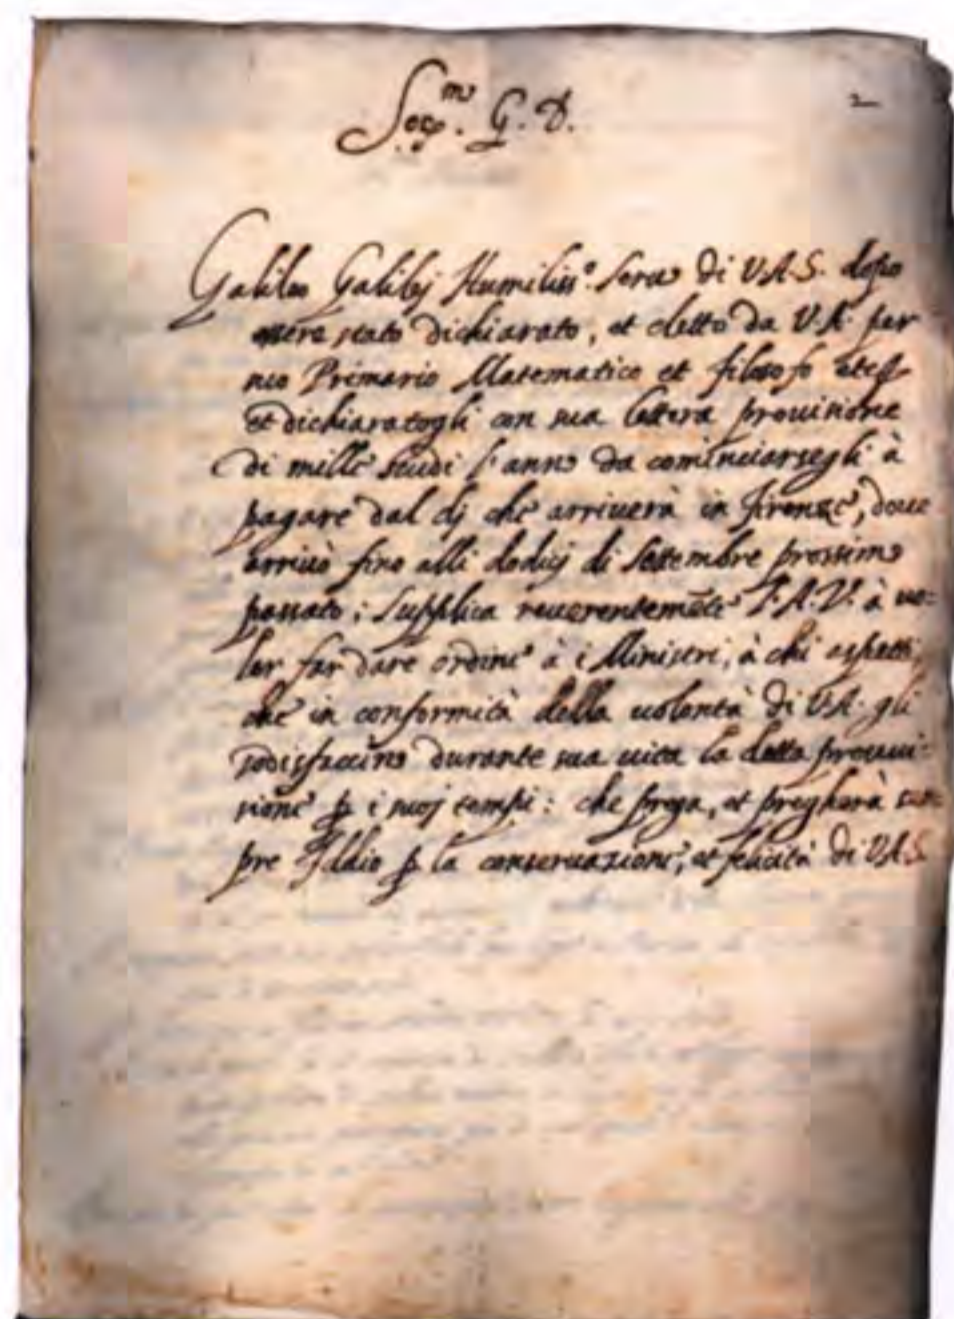 Ser.mo G. D.
2
Galileo Galilej Humiliss.o Servo di V.A.S. dopo
essere stato dichiarato, et eletto da V.A. per
suo Primario Matematico et filosofo
et dichiaratogli con sua lettera provisione
di mille scudi l'anno da cominciarsegli à
pagare dal dj che arriverà in Firenze, dove
arrivò fino alli dodicj di settembre prossimo
passato; supplica reverentemẽte l'A.V. à vo=
ler far dare ordine à i Ministri, à chi aspetti,
che in conformità della volontà di V.A. gli
sodisfaccino durante sua vita la detta provvi=
sione ꝑ i suoj tempi: che prega, et pregherà sem=
pre Iddio ꝑ la conservazione, et felicità di V.A.S.